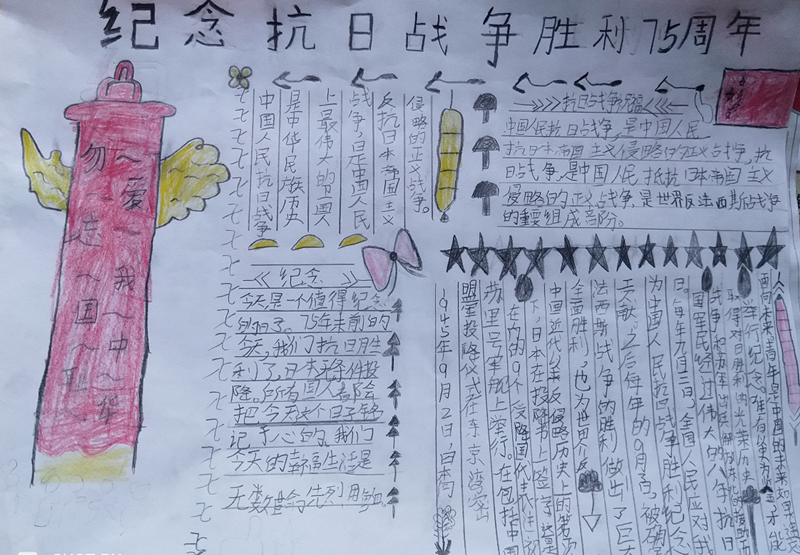 纪念抗日战争胜利75周年
爱我中华
勿忘国耻
中国人民抗日战争
是中华民族历史
上最伟大的卫国
战争,是中国人民
反抗日本帝国主义
侵略的正义战争。
抗日战争
中国人民抗日战争,是中国人民
抗日本帝国主义侵略的正义战争,抗
日战争,是中国人民抵抗日本帝国主义
侵略的正义战争,是世界反法西斯战争
的重要组成部份。
纪念
今天是一个值得纪念
的日子。75年来前的
今天,我们抗日胜
利了,日本无条件投
降。所有国人都会
把今天这个日子铭
记于心的。我们
今天的幸福生活是
无数革命先烈用
1945年9月2日,日本向
盟军投降仪式在东京湾密
苏里号军舰上举行。在包括中国
在内的9个受降国代表注视
下,日本在投降书上签字。这是
中国近代以来反侵略历史上的第一次
全面胜利,也为世界反
法西斯战争的胜利做出了巨
大贡献。之后每年的9月3日,被确
为中国人民抗日战争胜利纪念
日。每年九月三日,全国人民应对我
国军民经过伟大的八年抗日